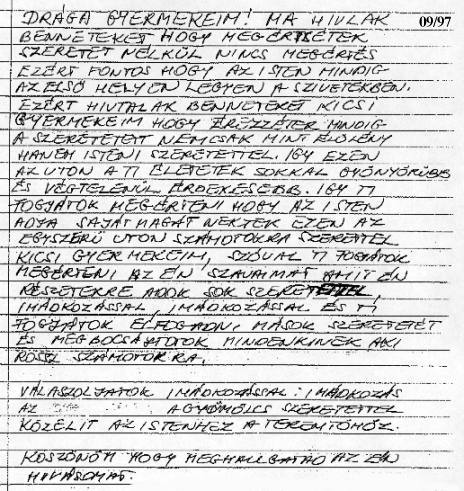 DRÁGA GYERMEKEIM! MA HIVLAK 09/97
BENNETEKET HOGY MEGÉRTSÉTEK
SZERETET NÉLKÜL NINCS MEGÉRTÉS
EZÉRT FONTOS HOGY AZ ISTEN MINDIG
AZ ELSŐ HELYEN LEGYEN A SZIVETEKBEN.
EZÉRT HIVTALAK BENNETEKET KICSI
GYERMEKEIM HOGY ÉREZZÉTEK MINDIG
A SZERETETEIT NEMCSAK MINT ÉLŐLÉNY
HANEM ISTENI SZERETETTEL. IGY EZEN
AZ UTON A TI ÉLETETEK SOKKAL GYÖNYÖRÜBB
ÉS VÉGTELENÜL ÉRDEKESEBB. IGY TI
FOGJÁTOK MEGÉRTENI HOGY AZ ISTEN
ADJA SAJÁT MAGÁT NEKTEK EZEN AZ
EGYSZERÜ UTON SZÁMOTOKRA SZERETTEL
KICSI GYERMEKEIM, SZÓVAL TI FOGJÁTOK
MEGÉRTENI AZ ÉN SZAVAIMAT AMIT ÉN
RÉSZETEKRE ADOK SOK SZERETETTEL,
IMÁDKOZÁSSAL, IMÁDKOZÁSSAL ÉS TI
FOGJÁTOK ELFOGADNI MÁSOK SZERETETÉT
ÉS MEGBOCSÁJTOTOK MINDENKINEK AKI
ROSSZ SZÁMOTOKRA.
VÁLASZOLJATOK IMÁDKOZÁSSAL: IMÁDKOZÁS
AZ A GYÜMÖLCS SZERETETTEL
KÖZELIT AZ ISTENHEZ A TEREMTŐHÖZ.
KÖSZÖNÖM HOGY MEGHALLGATOD AZ ÉN
HIVÁSOMAT.